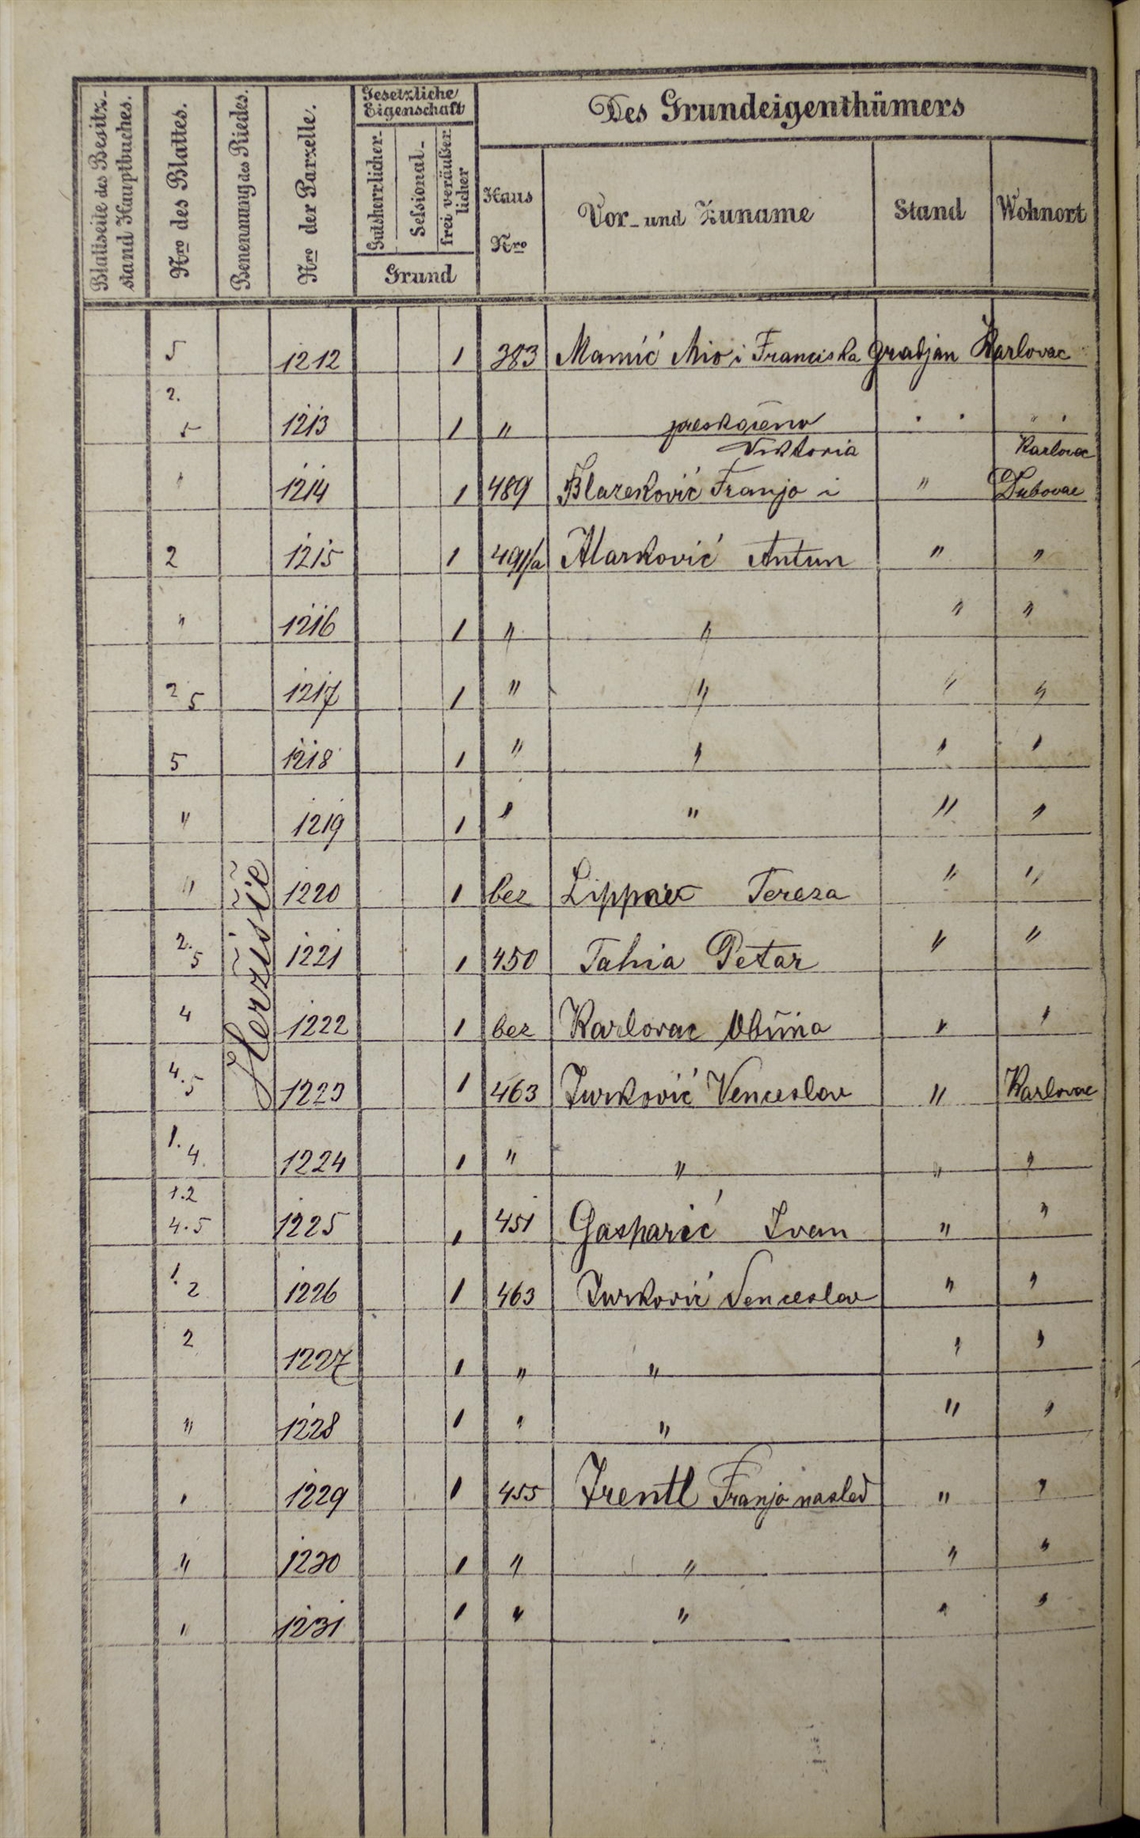 Blattseite des Besitz-
stand Hauptbuches.
Nro des Blattes.
Benennung des Riedes.
Nro der Parzelle.
Gesetzliche
Eigenschaft
Gutsherrlicher
Sessional-
frei veräußer
licher
Grund
Des Grundeigenthümers
Haus
Nro
Vor- und Zuname
Stand
Wohnort
5 1212 1 383 Mamić Mio i Franciska gradjan Karlovac
2.
5 1213 1 " preskočeno . . " "
Viktoria Karlovac
" 1214 1 489 Blazeković Franjo i " Dubovac
2 1215 1 491/a Marković Antun " "
" 1216 1 " " " "
2 5 1217 1 " " " "
5 1218 1 " " " "
" 1219 1 " " " "
" 1220 1 bez Tereza " "
2. 5 1221 1 450 Tahia Petar " "
4 1222 1 bez Karlovac " "
4. 5 1223 1 463 Jurković Venceslav " Karlovac
1. 4. 1224 1 " " " "
1.2
4.5 1225 1 451 Gasparić Ivan " "
1. 2 1226 1 463 Jurković Venceslav " "
2 1227 1 " " " "
" 1228 1 " " " "
" 1229 1 455 Trentl Franjo nasled " "
" 1230 1 " " " "
" 1231 1 " " " "